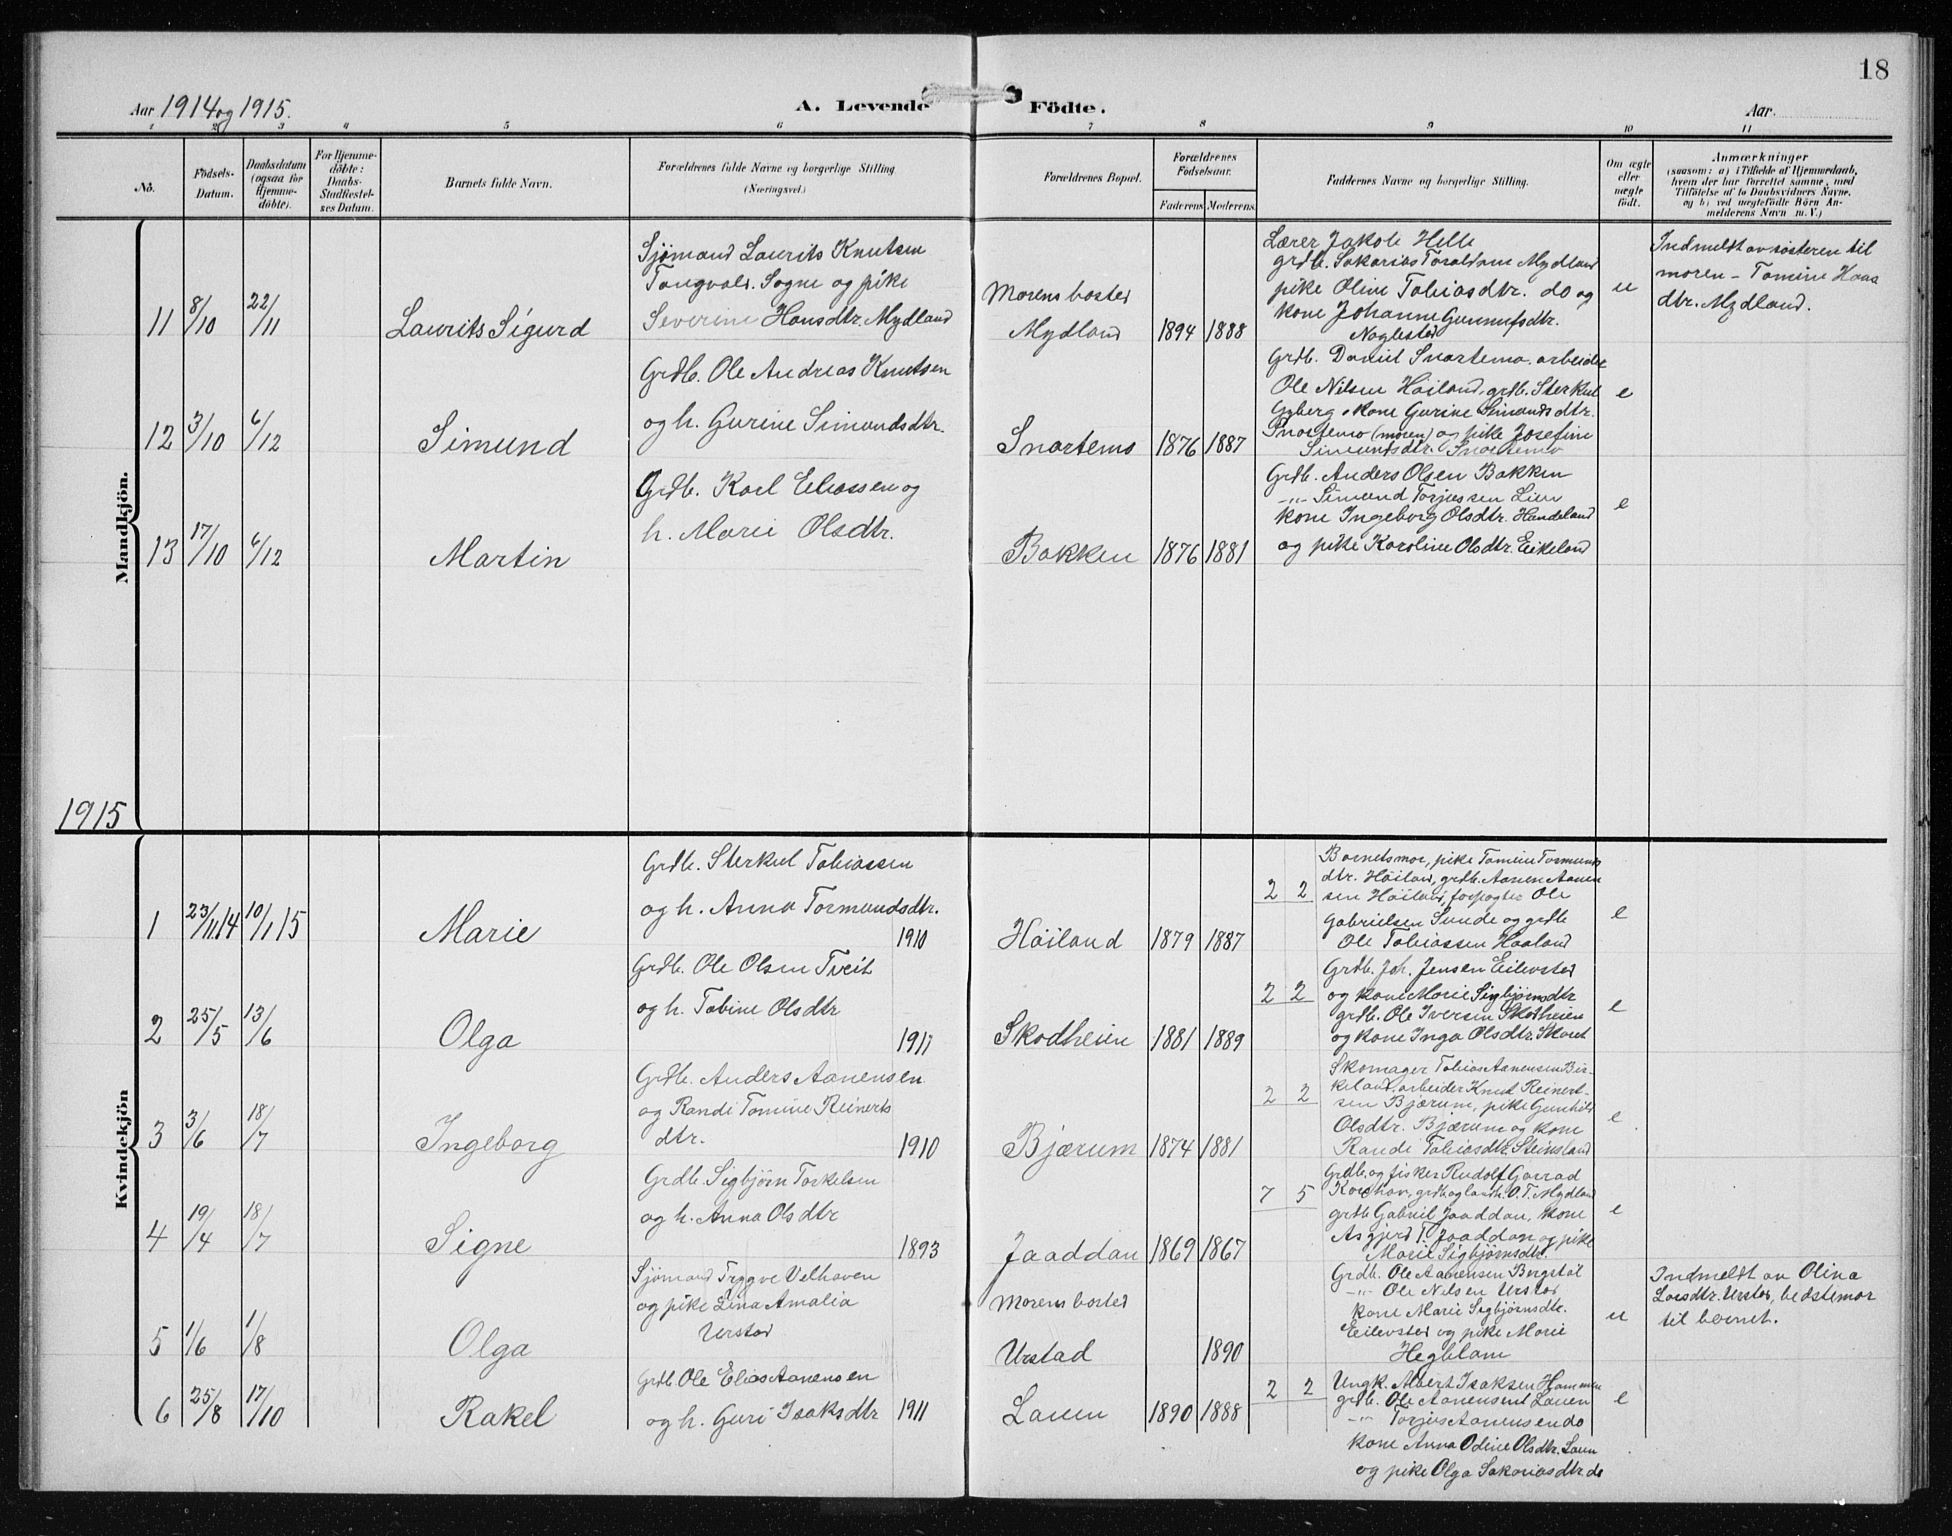 18
Aar 1914 og 1915.
A. Levende Födte.
Aar.
1 2 3 4 5 6 7 8 9 10 11
No.
Födsels-Datum.
Daabsdatum (ogsaa for Hjemme-döbte).
For Hjemme-döbte: Daabs-Stadfæstel-ses Datum.
Barnets fulde Navn.
Forældrenes fulde Navne og borgerlige Stilling (Næringsvei.)
Forældrenes Bopæl.
Forældrenes Födselsaar.
Faderens. Moderens.
Faddernes Navne og borgerlige Stilling.
Om ægte eller uægte födt.
Anmærkninger
(saasom: a) i Tilfælde af Hjemmedaab,
hvem der har forrettet samme, med
Tilföielse af to Daabsvidners Navne,
og b) ved uægtefödte Börn An-
melderens Navn m. V.)
Mandkjön.
11 8/10 22/11 Laurits Sigurd
Sjømand Laurits Knutsen
Tangvald. Sogne og pike
Severine Hansdtr. Mydland
Morens bosted
Mydland 1894 1888
Lærer Jakob Helle
grdb. Sakarias Toraldsne Mydland
pike Oline Tobiasdtr. do og
kone Johanne Gunnufsdtr.
Noglestad
u
Indmeldt av søsteren til
moren – Tomine Hans
dtr. Mydland.
12 3/10 6/12 Simund
Grdb. Ole Andreas Knutsen
og h. Gurine Simundsdtr.
Snartemo 1876 1887
Grdb. Daniel Snartemo. arbeider
Ole Nilsen Høiland, grdb. Sterkul
Gyberg, kone Gurine Simundsdtr.
Snartemo (moren) og pike Josefine
Simundsdtr. Snartemo
e
13 17/10 6/12 Martin
Grdb. Karl Eliassen og
h. Marie Olsdtr.
Bakken 1876 1881
Grdb. Anders Olsen Bakken
–"– Simund Torjussen Lien
kone Ingeborg Olsdtr. Handeland
og pike Karoline Olsdtr. Eikeland
e
1915
Kvindekjön
1 23/11 14 10/1 15 Marie
Grdb. Sterkul Tobiassen
og h. Anna Tormundsdtr.
1910
Høiland 1879 1887
2 2
Barnets mor, pike Tomine Tormunds
dtr. Høiland, grdb. Aanen Aanen
sen Høiland, forpagter Ole
Gabrielsen Sunde og grdb
Ole Tobiassen Haaland
e
2 25/5 13/6 Olga
Grdb. Ole Olsen Tveit
og h. Tobine Olsdtr
1911
Skodheien 1881 1889
2 2
Grdb. Joh. Jensen Eilevstad
og kone Marie Sigbjørnsdtr
grdb. Ole Iversen Skodheien
og kone Inga Olsdtr.
e
3 3/6 18/7 Ingeborg
Grdb. Anders Aanensen
og Randi Tomine Reinerts
dtr.
1910
Bjærum 1874 1881
2 2
Skomager Tobias Aanensen Bir-
keland, arbeider Knut Reinert-
sen Bjærum, pike Gunhild
Olsdtr. Bjærum og kone
Randi Tobiasdtr. Steinsland
e
4 19/4 18/7 Signe
Grdb. Sigbjørn Torkelsen
og h. Anna Olsdtr
1893
Jaaddan 1869 1867
7 5
Grdb. og fisker Rudolf Gerrad
Korshavn, grdb og landh. O. T. Mydland
grdb Gabriel Jaaddan, kone
Asgjerd T. Jaaddan og pike
Marie Sigbjørnsdtr.
e
5 1/6 1/8 Olga
Sjømand Trygve Velhaven
og pike Lina Amalia
Urstad
Morens bosted
Urstad 1890
Grdb. Ole Aanensen Bergstøl
–"– Ole Nilsen Urstad
kone Marie Sigbjørnsdtr.
Eilevstad og pike Marie
Hegbelam
u
Indmeldt av Olina
Larsdtr. Urstad, bedstemor
til barnet.
6 25/8 17/10 Rakel
Grdb Ole Elias Aanensen
og h. Guri Isaksdtr 1911
Lauen 1890 1888
2 2
Ungk. Albert Isaksen Hommen
grdb. Ole Aanensen Lauen
–"– Torjus Aanensen do
kone Anna Odine Olsdtr. Lauen
og pike Olga Sakariasdtr. do
e